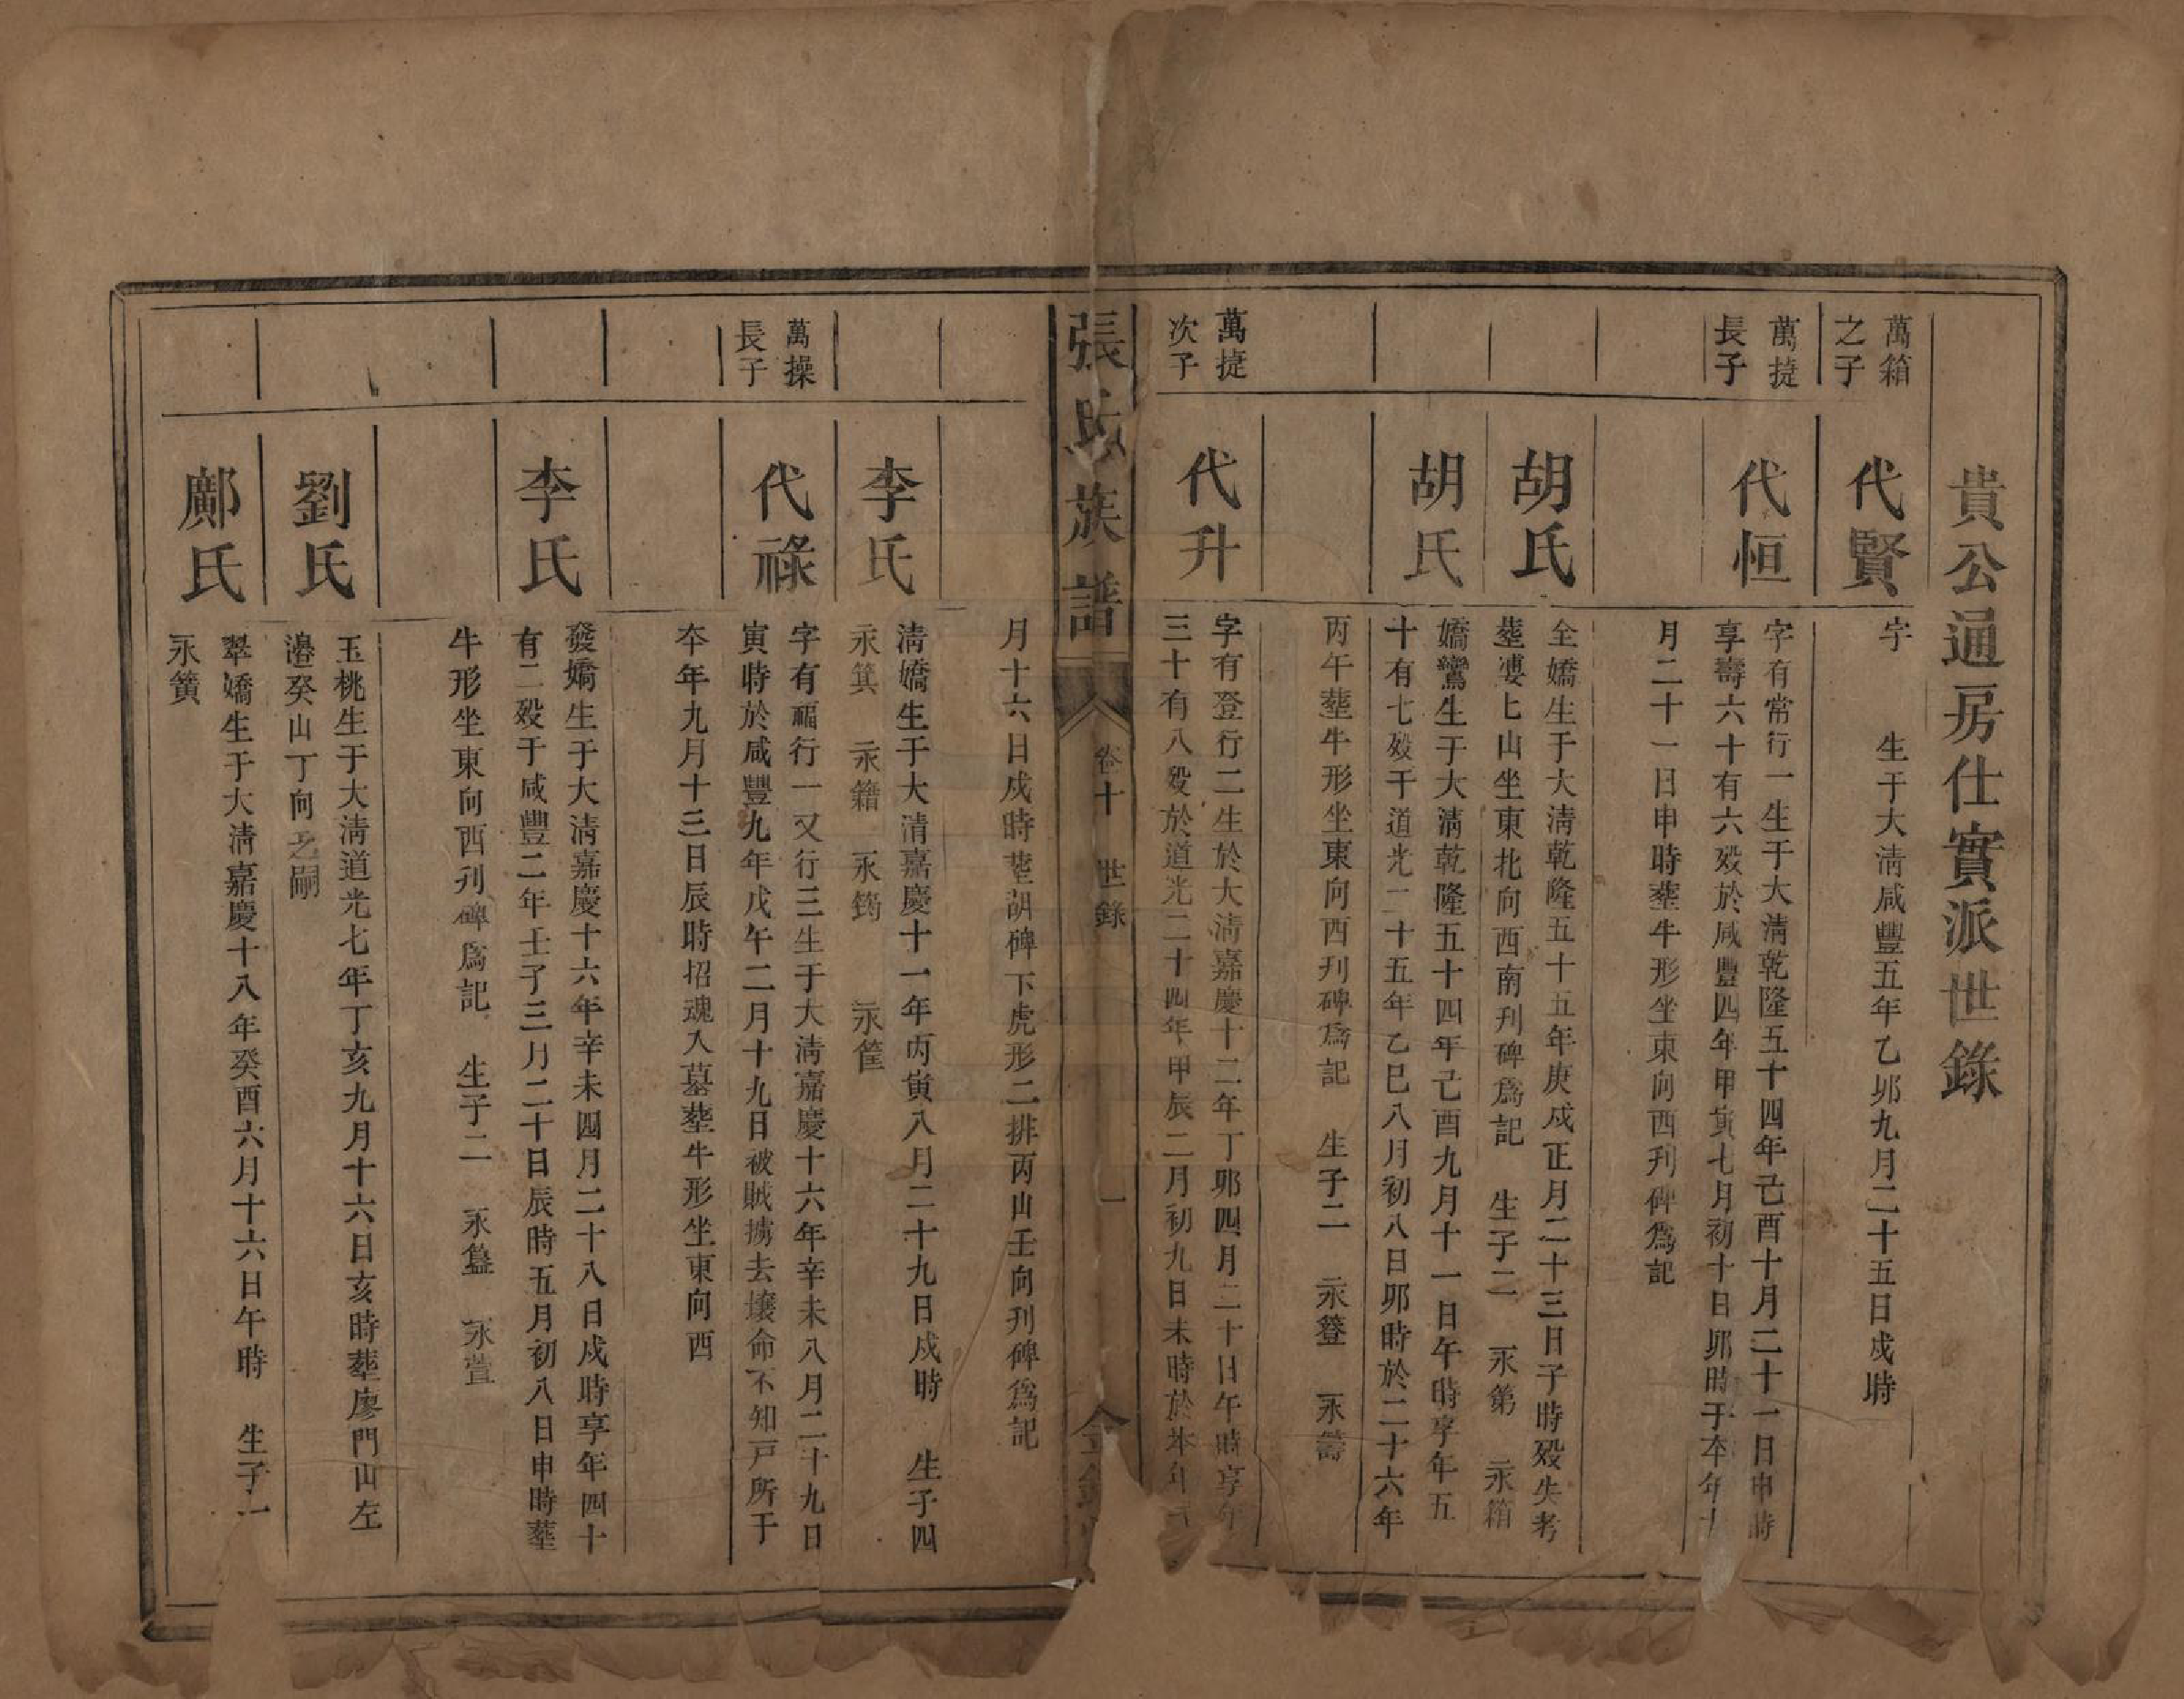 貴公通房仕實派世錄
萬箱
之子
代賢
字　生于大淸咸豐五年乙夘九月二十五日戍時
萬㨗
長子
代恒
字有常行一生于大淸乾隆五十四年己酉十月二十一日申時
享壽六十有六殁於咸豐四年甲寅七月初十日夘時于本年十
月二十一日申時塟牛形坐東向西刋碑爲記
胡氏
全嬌生于大淸乾隆五十五年庚戍正月二十三日子時殁失考
塟凄七山坐東北向西南刋碑爲記　生子二　永第　永箱
胡氏
嬌鸞生于大淸乾隆五十四年己酉九月十一日午時享年五
十有七殁于道光二十五年乙巳八月初八日夘時於二十六年
丙午塟牛形坐東向西刋碑爲記　生子二　永簦　永籌
萬㨗
次子
代升
字有登行二生於大淸嘉慶十二年丁夘四月二十日午時享年
三十有八殁於道光二十四年甲辰二月初九日未時於本年
張氏族譜
卷十　世錄
一
金
月十六日戍時塟胡碑下虎形二排丙山壬向刋碑爲記
李氏
淸嬌生于大淸嘉慶十一年丙寅八月二十九日戍時　生子四
永箕　永籍　永筠　永筐
萬操
長子
代祿
字有福行一又行三生于大淸嘉慶十六年辛未八月二十九日
寅時於咸豐九年戊午二月十九日被賊擄去壊命不知尸所于
本年九月十三日辰時招魂入墓塟牛形坐東向西
李氏
發嬌生于大淸嘉慶十六年辛未四月二十八日戍時享年四十
有二殁于咸豐二年壬子三月二十日辰時五月初八日申時塟
牛形坐東向西刋碑爲記　生子二　永簋　永萱
劉氏
玉桃生于大淸道光七年丁亥九月十六日亥時塟廖門山左
邉癸山丁向乏嗣
鄺氏
翠嬌生于大淸嘉慶十八年癸酉六月十六日午時　生子一
永簧